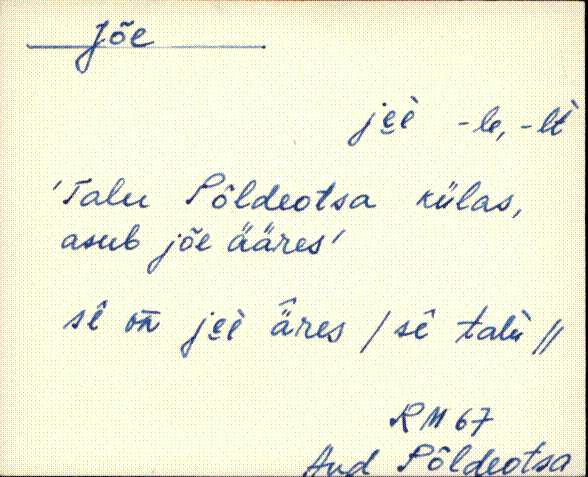 Jõe
je̮è -le, -lt
'Talu Põldeotsa külas,
asub jõe ääres'
sê on̄ je̮è äres / sê talù //
RM 67
Aud Põldeotsa